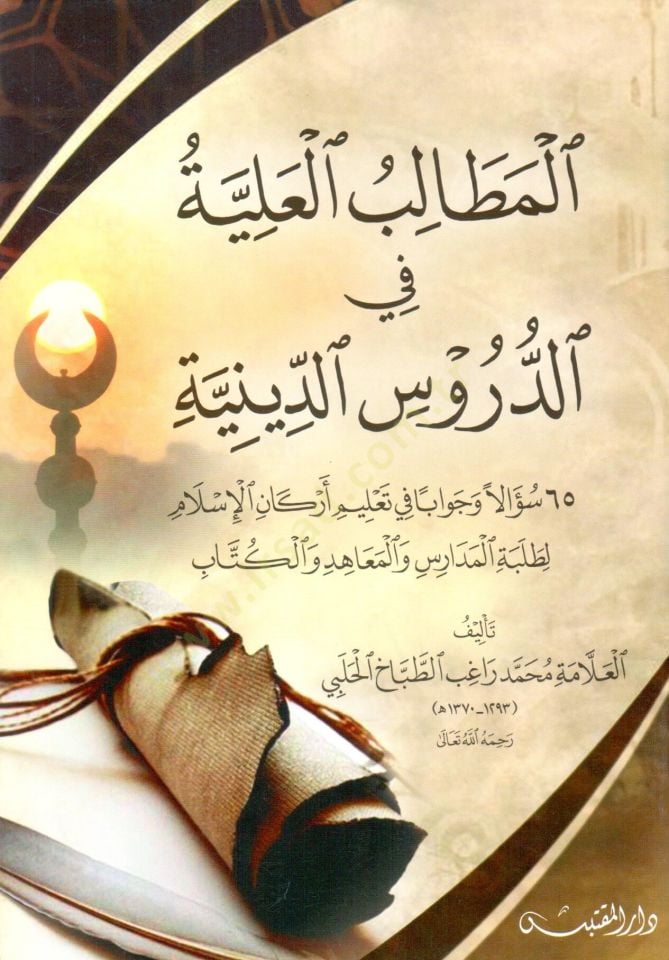 اَلْمَطَالِبُ الْعَلِيَّةُ
فِي
الدُّرُوْسِ الدِّينِيَّةِ
٦٥ سُؤَالاً وَجَوَابًا فِي تَعْلِيمِ أَرْكَانِ الْإِسْلَامِ
لِطَلَبَةِ الْمَدَارِسِ وَالْمَعَاهِدِ وَالْكُتَّابِ
تَأْلِيْفُ
الْعَلَّامَةِ مُحَمَّد رَاغِب الطَّبَّاخ الْحَلَبِي
(١٢٩٣ـ١٣٧٠ه)
رَحِمَهُ اللَّهُ تَعَالَى
دار المقتبس